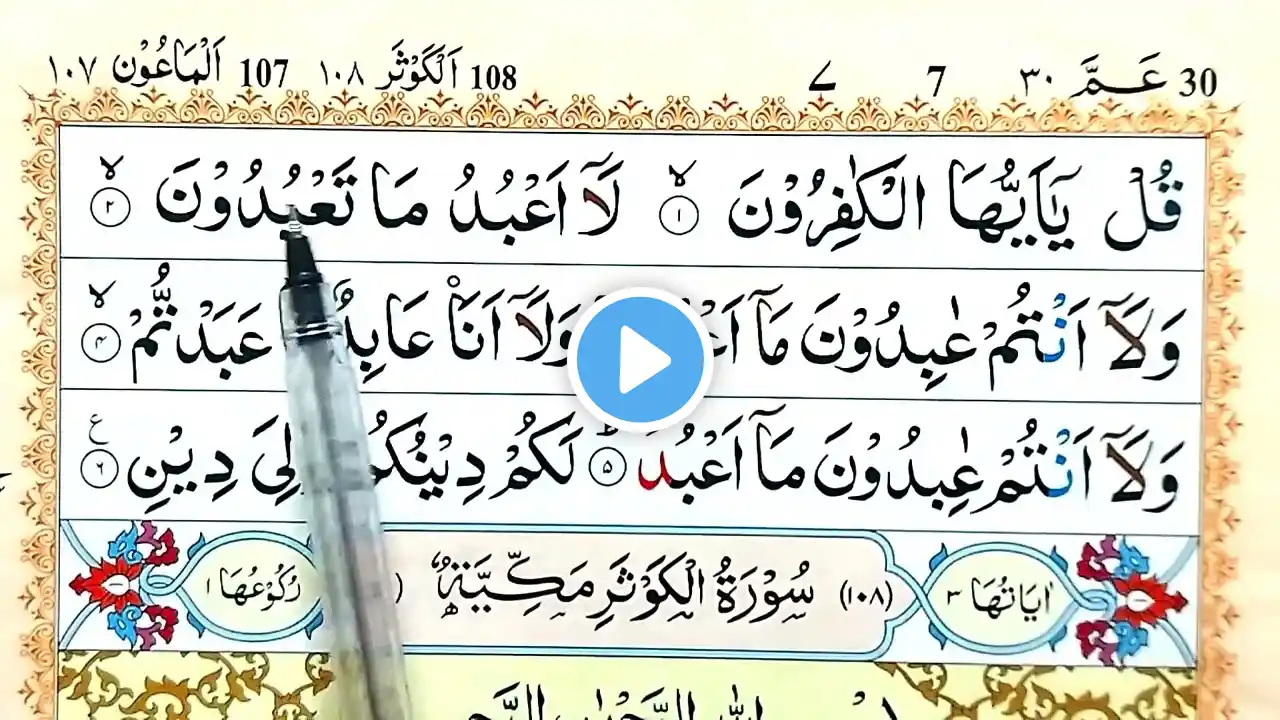 30 عَمَّ ٣٠ 7 ٧ 108 اَلْكَوْثَر ١٠٨ 107 اَلْمَاعُوْن ١٠٧
قُلْ يٰۤاَيُّهَا الْكٰفِرُوْنَ ۙ ١ لَاۤ اَعْبُدُ مَا تَعْبُدُوْنَ ۙ ٢
وَلَاۤ اَنْتُمْ عٰبِدُوْنَ مَاۤ وَلَاۤ اَنَا۠ عَابِدٌ عَبَدْتُّمْ ۙ ٤
وَلَاۤ اَنْتُمْ عٰبِدُوْنَ مَاۤ اَعْبُدُ ؕ ٥ لَكُمْ دِيْنُكُمْ وَلِيَ دِيْنِ ٦ ع
اٰيَاتُهَا ٣ (١٠٨) سُوْرَةُ الْكَوْثَرِ مَكِّيَّةٌ رُكُوْعُهَا ١
اللهِ الرَّحْمٰنِ